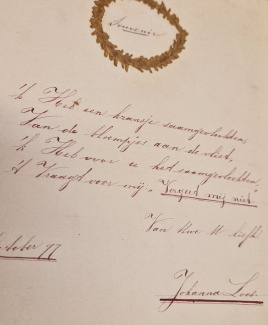 Souvenir
'k Heb een kransje saamgevlochten,
Van de bloempjes aan de vliet,
'k Heb voor u het saamgevlochten
't Vraagt voor mij "Vergeet mij niet.
Van Uwe U liefh
tober 77
Johanna